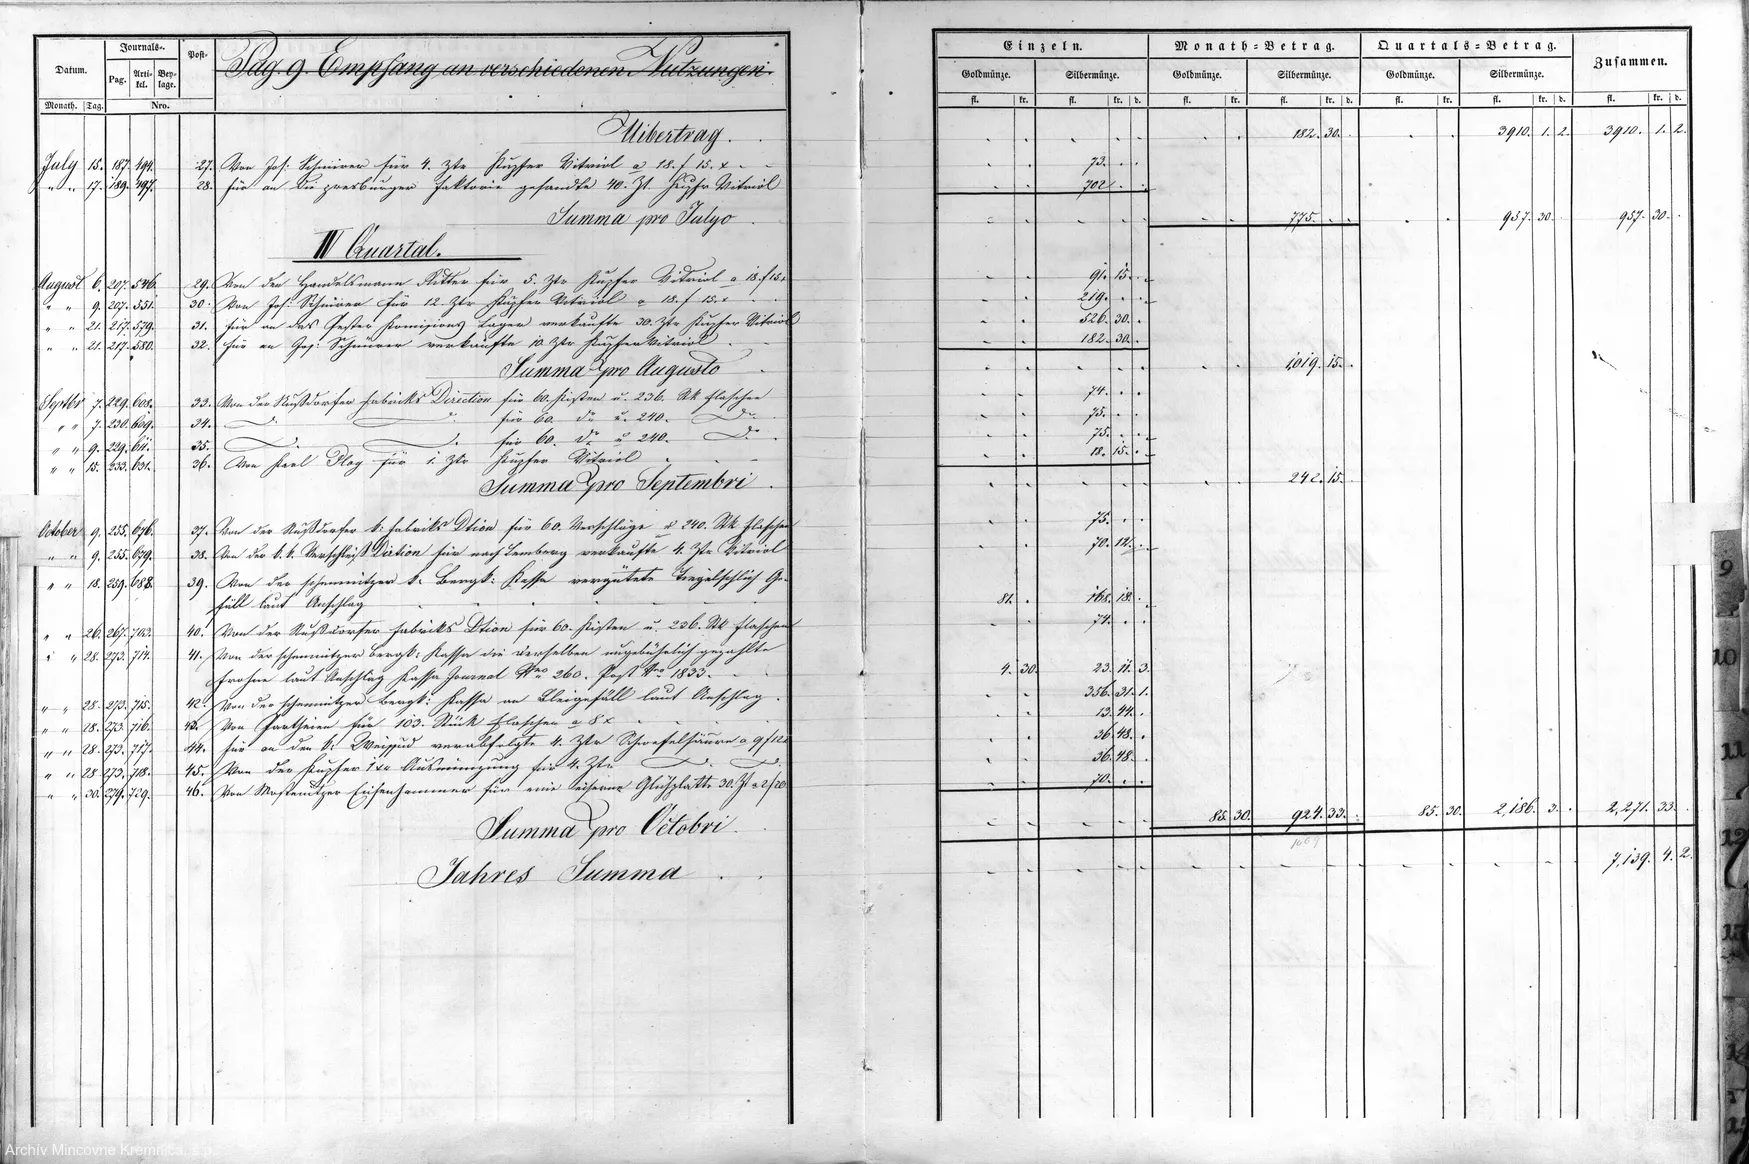 Datum. Journals- Post- Pag 9. Empfang an verschiedenen Nutzungen. Einzeln. Monath-Betrag. Quartals-Betrag. Zusammen.
Pag. Arti-kel. Bey-lage. Goldmünze. Silbermünze. Goldmünze. Silbermünze. Goldmünze. Silbermünze.
Monath. Tag. Nro. fl. kr. fl. kr. d. fl. kr. fl. kr. d. fl. kr. fl. kr. d. fl. kr. d.
Uibertrag. 182. 30. 3910. 1. 2. 3910. 1. 2.
July 15. 187. 494. 27. Von Jos: Schnirer für 4. Ztr Kupfer Vitriol a 18. f 15. x 73.
" " 17. 189. 497. 28. für an die presburger faktorie gesandte 40. Zt. Kupfr Vitriol 702
Summa pro Julyo 775. 957. 30. 957. 30.
IV Quartal.
August 6. 207. 546. 29. Von den Handelsmann Ritter für 5. Ztr Kupfer Vitriol a 18. f 15 x 91. 15.
" " 9. 207. 551. 30. Von Jos: Schnirer für 12 Ztr Kupfer Vitriol a 18. f 15. x 219.
" " 21. 217. 579. 31. für an das Pester Komisions Lager verkaufte 30. Ztr Kupfer Vitriol 526. 30.
" " 21. 217. 580. 32. für an Jos: Schnirer verkaufte 10 Ztr Kupfer Vitriol 182. 30.
Summa pro Augusto 1,019. 15.
Septbr 7. 229. 608. 33. Von der Nußdorfer Fabriks Direction für 60. Kisten u. 236. Stk flaschen 74.
" " 7. 230. 609. 34. für 60. do u. 240. do 75.
" " 9. 229. 611. 35. für 60. do u 240. do 75.
" " 15. 233. 631. 36. Von Karl Plog für 1. Ztr Kupfer Vitriol 18. 15.
Summa pro Septembri 242. 15.
October 9. 255. 676. 37. Von der Nußdorfer k: fabriks Dtion für 60. Verschläge u 240. Stk flaschen 75.
" " 9. 255. 679. 38. Von der k. k. Verschleiß Dirtion für nach Lemberg verkaufte 4. Ztr Vitriol 70. 12.
" " 18. 259. 688. 39. Von der schemnitzer k: Bergk: Kassa vergütete Tiegelschlich Ge-
fäll laut Anschlag 81. 168. 18.
" " 26. 267. 703. 40. Von der Nußdorfer fabriks Dtion für 60. Kisten u. 236. Stk flaschen 74.
" " 28. 273. 714. 41. Von der schemnitzer Bergk: Kassa die derselben ungebührlich gezahlte
frohne laut Anschlag Kassa Journal Nro 260. Post Nro 1833. 4. 30. 23. 11. 3.
" " 28. 273. 715. 42. Von der schemnitzer Bergk: Kassa an Bleigefäll laut Anschlag. 356. 31. 1.
" " 28. 273. 716. 43. Von Partheien für 103. Stück flaschen a 8 x 13. 44.
" " 28. 273. 717. 44. für an den k: Weissud verabfolgte 4. Ztr Schwefelsäure a 9 f 12 x 36. 48.
" " 28. 273. 718. 45. Von der Kupfer Ausmünzung für 4. Ztr 36. 48.
" " 30. 279. 729. 46. Von Mostenitzer Eisenhammer für eine eiserne Glühplatte 30. a 2 f 20 70.
Summa pro Octobri 85. 30. 924. 33. 85. 30. 2,186. 3. 2,271. 33.
Jahres Summa 7,139. 4. 2.
9
10
11
12
Archív Mincovne Kremnica, š.p.